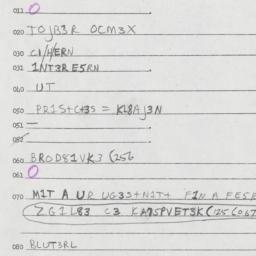 011 O
020 TOJB3R OCM3X
030 C1/HERN
031 1NT3RE5RN
040 UT
050 PR1S+C+3S = KL8AJ3N
051 —
052
060 BROD81VK3 (256
061 O
070 M1T A UR UG3S+N1T+ F1N A FESE
ZG1L83 C3 KA75PVET3K (125(067
080 BLUT3RL